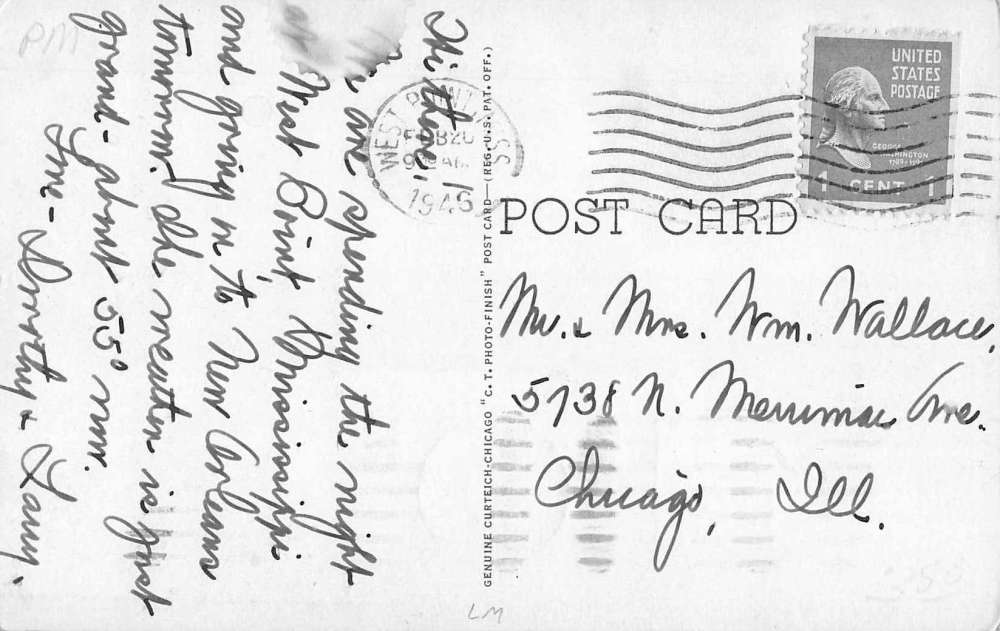 Hi there,
are spending the night
West Point, Mississippi
and going in to New Orleans
tomorrow. The weather is just
grand - about 55° now.
Love - Dorothy &
PM
WEST POINT
FEB 20
1946
UNITED
STATES
POSTAGE
GEORGE
WASHINGTON
1 CENT 1
POST CARD
Mr. & Mrs. Wm. Wallace,
5738 N. Merrimac Ave.
Chicago, Ill.
GENUINE CURTEICH-CHICAGO "C. T. PHOTO-FINISH" POST CARD—(REG. U. S. PAT. OFF.)
LM